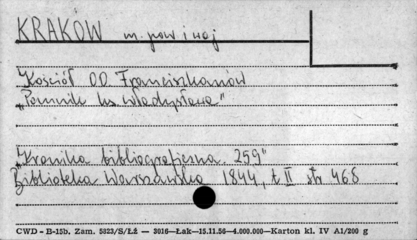 KRAKÓW m. pow i woj
Kościół OO Franciszkanów
"Pomnik ks Władysława"
"Kronika bibliograficzna 259"
Biblioteka Warszawska 1844, t II str 468
CWD - B-15b. Zam. 5823/S/Łź — 3016—Łak—15.11.56—4.000.000—Karton kl. IV A1/200 g